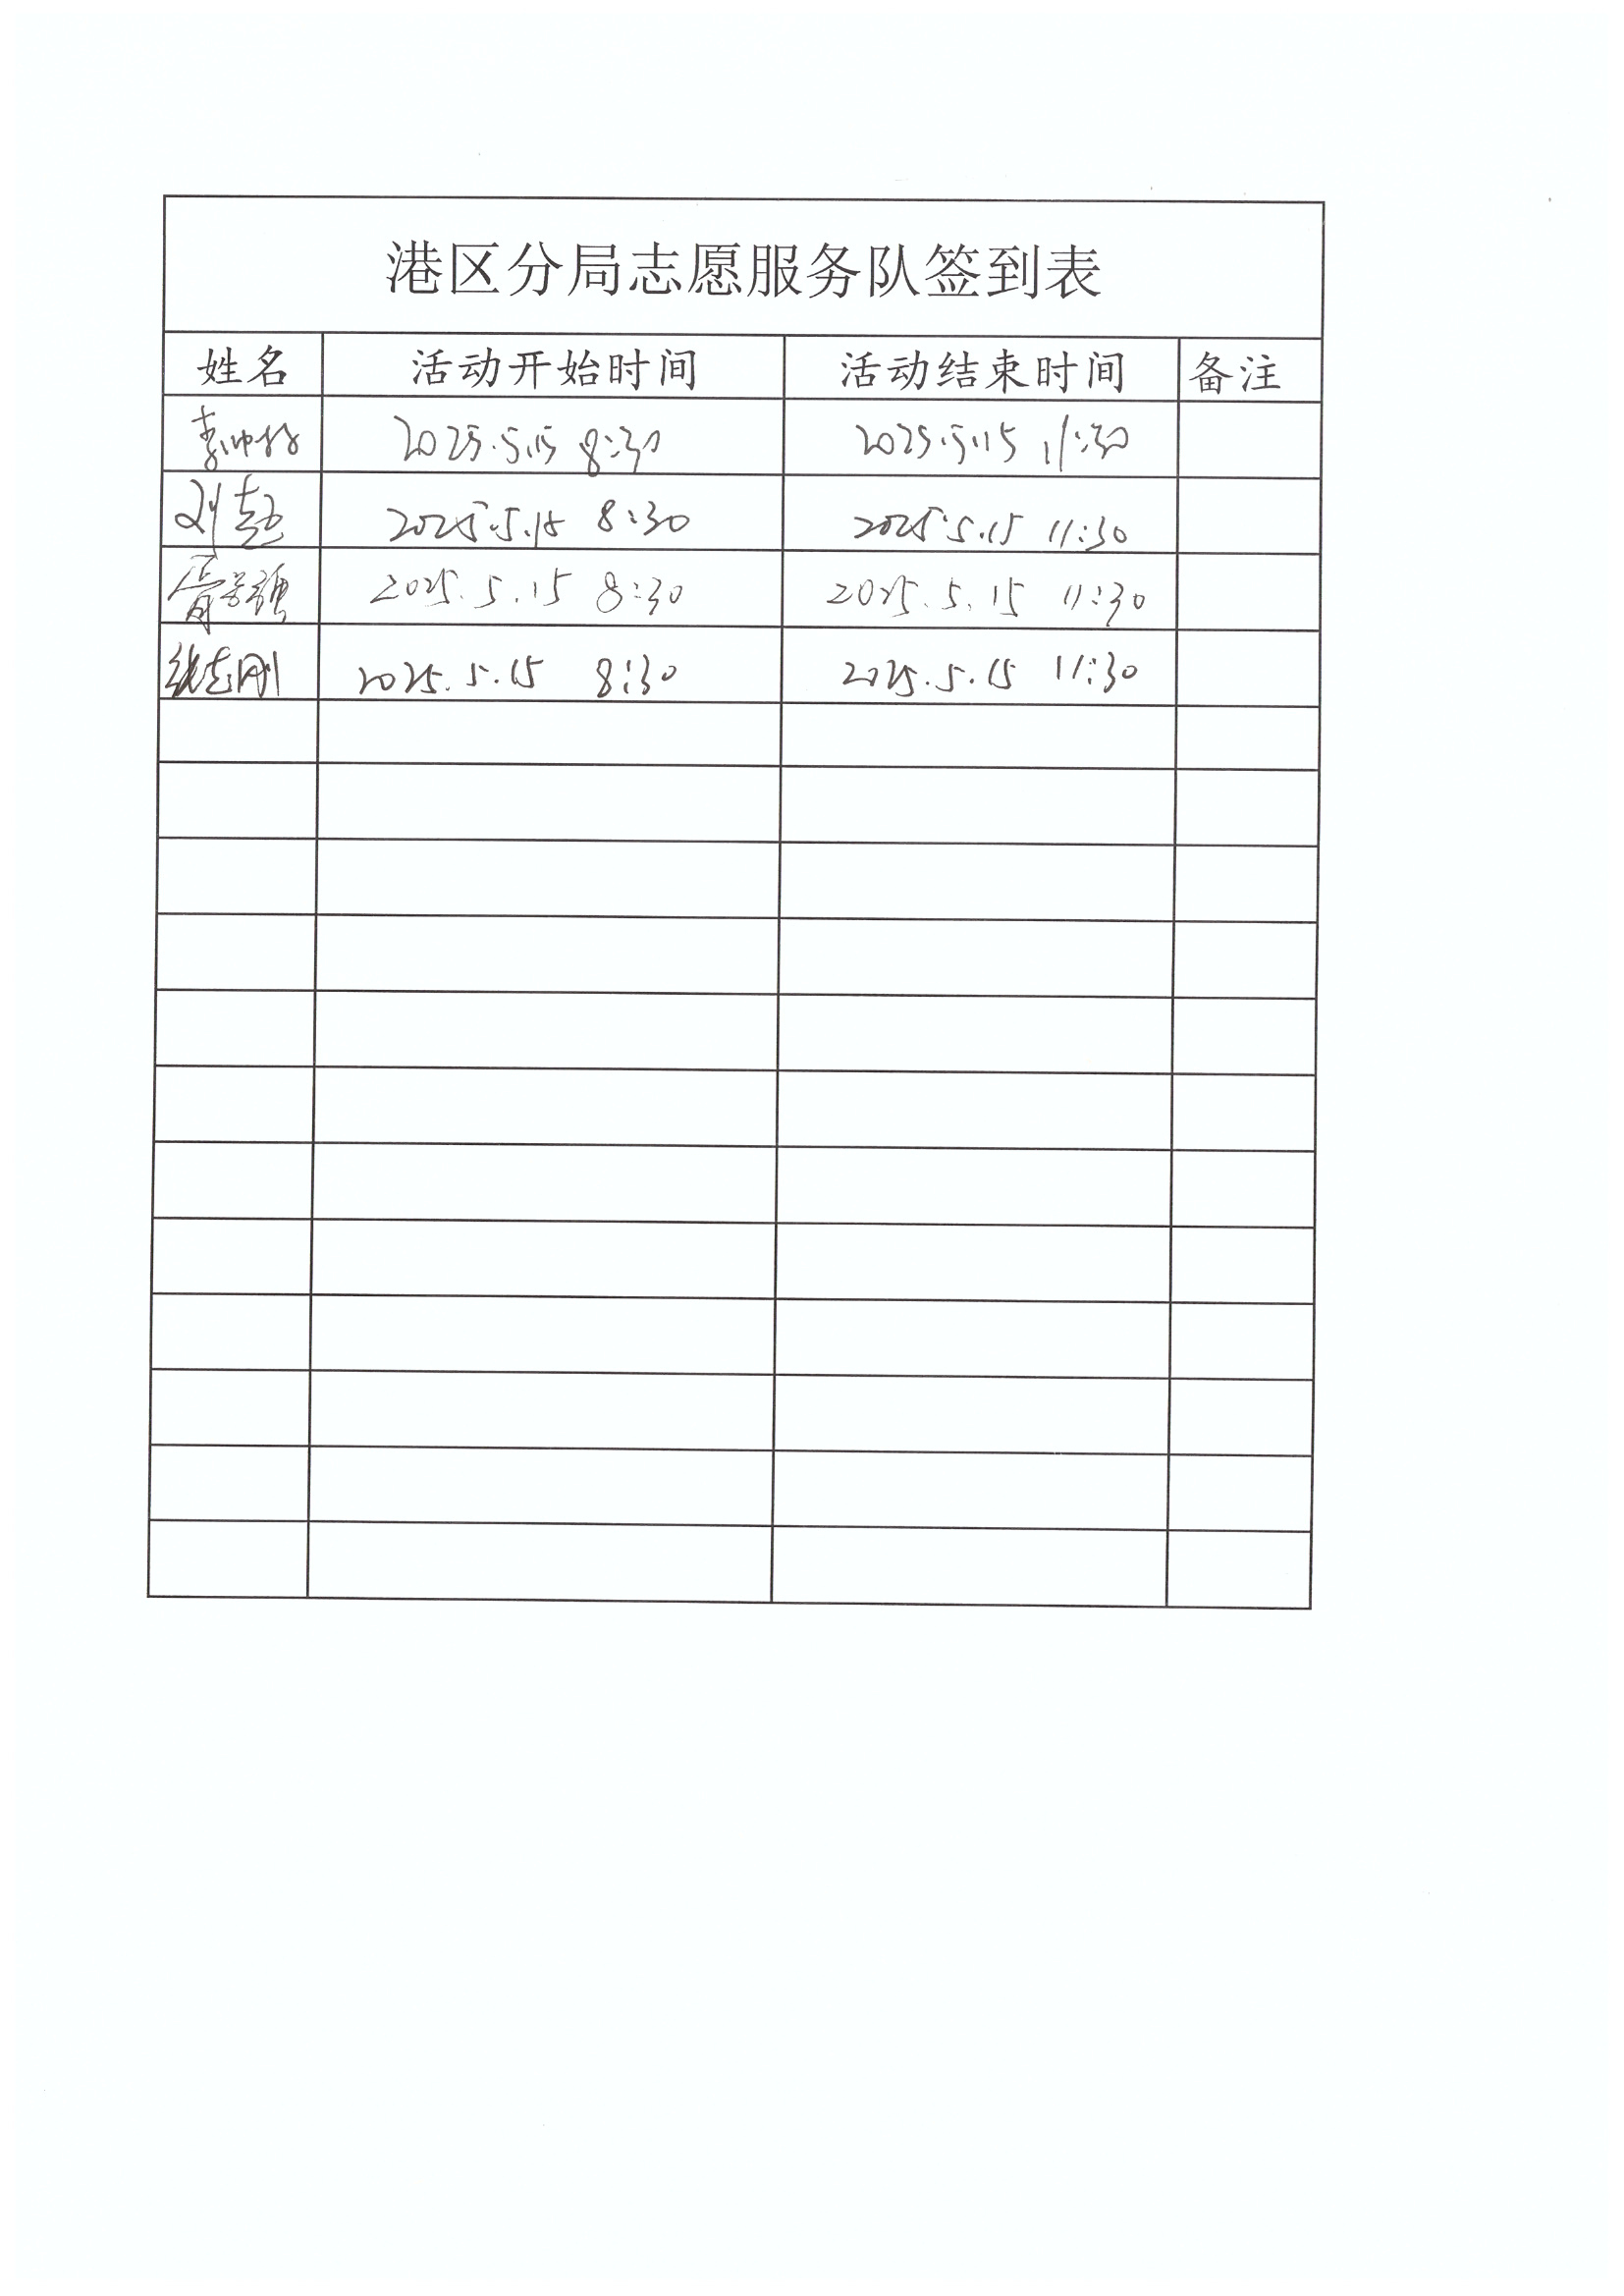 港区分局志愿服务队签到表
姓名 活动开始时间 活动结束时间 备注
2025.5.15 8:30 2025.5.15 11:30
刘超 2025.5.15 8:30 2025.5.15 11:30
2025.5.15 8:30 2025.5.15 11:30
张志刚 2025.5.15 8:30 2025.5.15 11:30